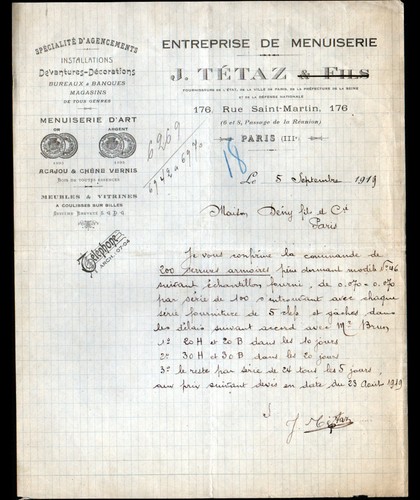 SPÉCIALITÉ D'AGENCEMENTS
INSTALLATIONS
Devantures-Décorations
BUREAUX & BANQUES
MAGASINS
DE TOUS GENRES
MENUISERIE D'ART
OR ARGENT
ACAJOU & CHÊNE VERNIS
MEUBLES & VITRINES
A COULISSES SUR BILLES
Téléphone
ARCH. 07-04
ENTREPRISE DE MENUISERIE
J. TÉTAZ & FILS
FOURNISSEURS DE L'ÉTAT, DE LA VILLE DE PARIS, DE LA PRÉFECTURE DE LA SEINE
ET DE LA DÉFENSE NATIONALE
176, Rue Saint-Martin, 176
(6 et 8, Passage de la Réunion)
PARIS (IIIe)
6269
6942 à 6970
18
Le 5 Septembre 1919
Maison Dény fils et Cie
Paris
Je vous confirme la commande de
200 serrures armoires pène dormant modèle No 46
suivant échantillon fourni, de 0.070 = 0.070
par série de 100 s'entrouvant avec chaque
série fourniture de 5 clefs et gâches dans
les délais suivant accord avec Mr Brun
1º 20 H et 20 B dans les 10 jours
2º 30 H et 30 B dans les 20 jours
3º le reste par série de 24 tous les 5 jours,
aux prix suivant devis en date du 23 Août 1919